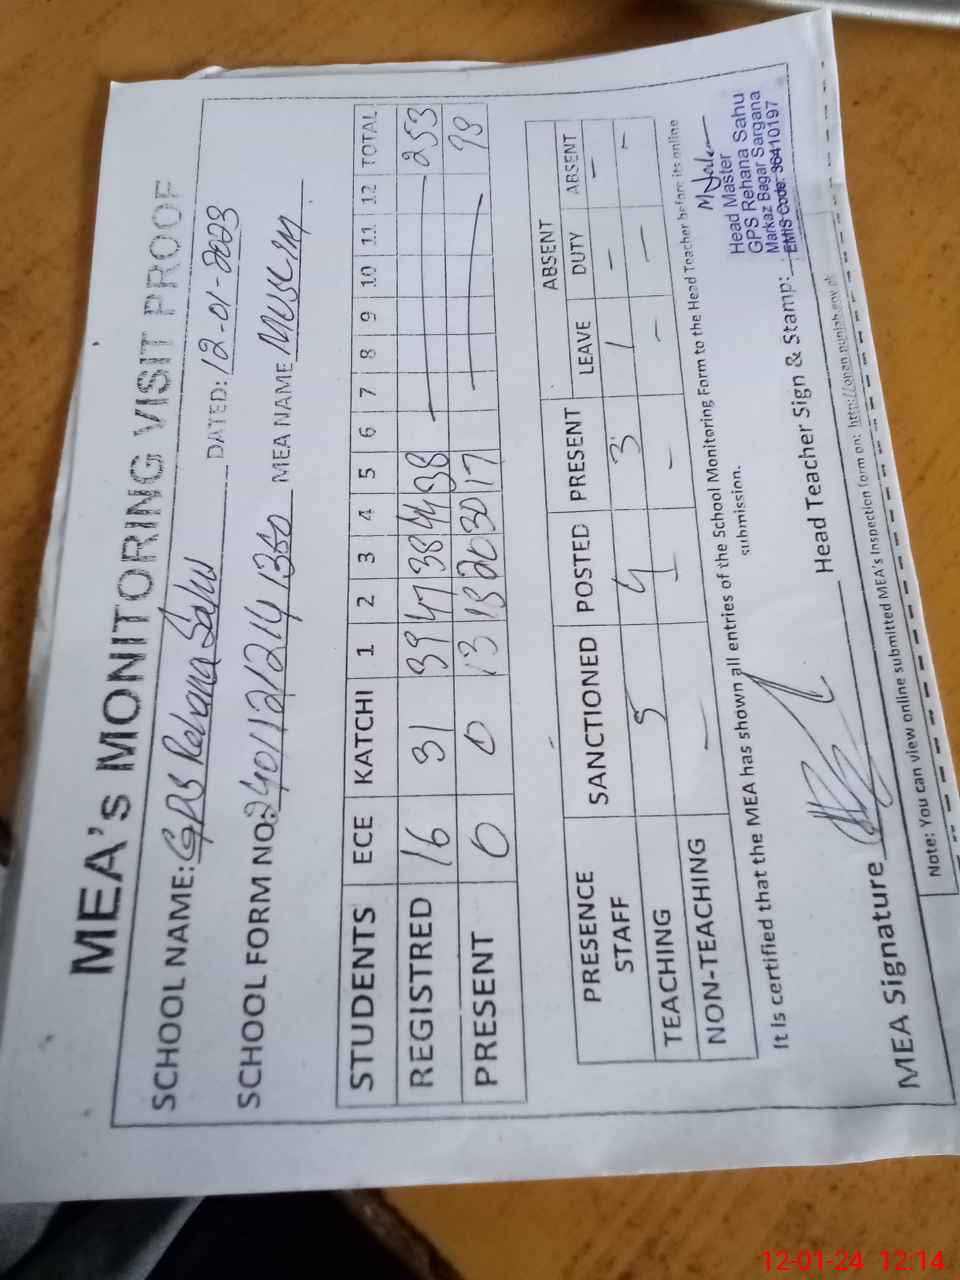 MEA's MONITORING VISIT PROOF
SCHOOL NAME: GPS Rehana Sahu DATED: 12-01-2023
SCHOOL FORM NO: MEA NAME MUSLIM
STUDENTS ECE KATCHI 1 2 3 4 5 6 7 8 9 10 11 12 TOTAL
REGISTRED 16 31 39 47 38 44 38 — 253
PRESENT 0 0 13 18 20 30 17 — 98
ABSENT
PRESENCE STAFF SANCTIONED POSTED PRESENT LEAVE DUTY ABSENT
TEACHING 5 4 3 1 — —
NON-TEACHING — — — — — —
It is certified that the MEA has shown all entries of the School Monitoring Form to the Head Teacher before its online
submission.
Head Master
GPS Rehana Sahu
Markaz Bagar Sargana
EMIS Code: 36410197
MEA Signature Head Teacher Sign & Stamp:
Note: You can view online submitted MEA's Inspection form on: http://open.punjab.gov.pk
12-01-24 12:14